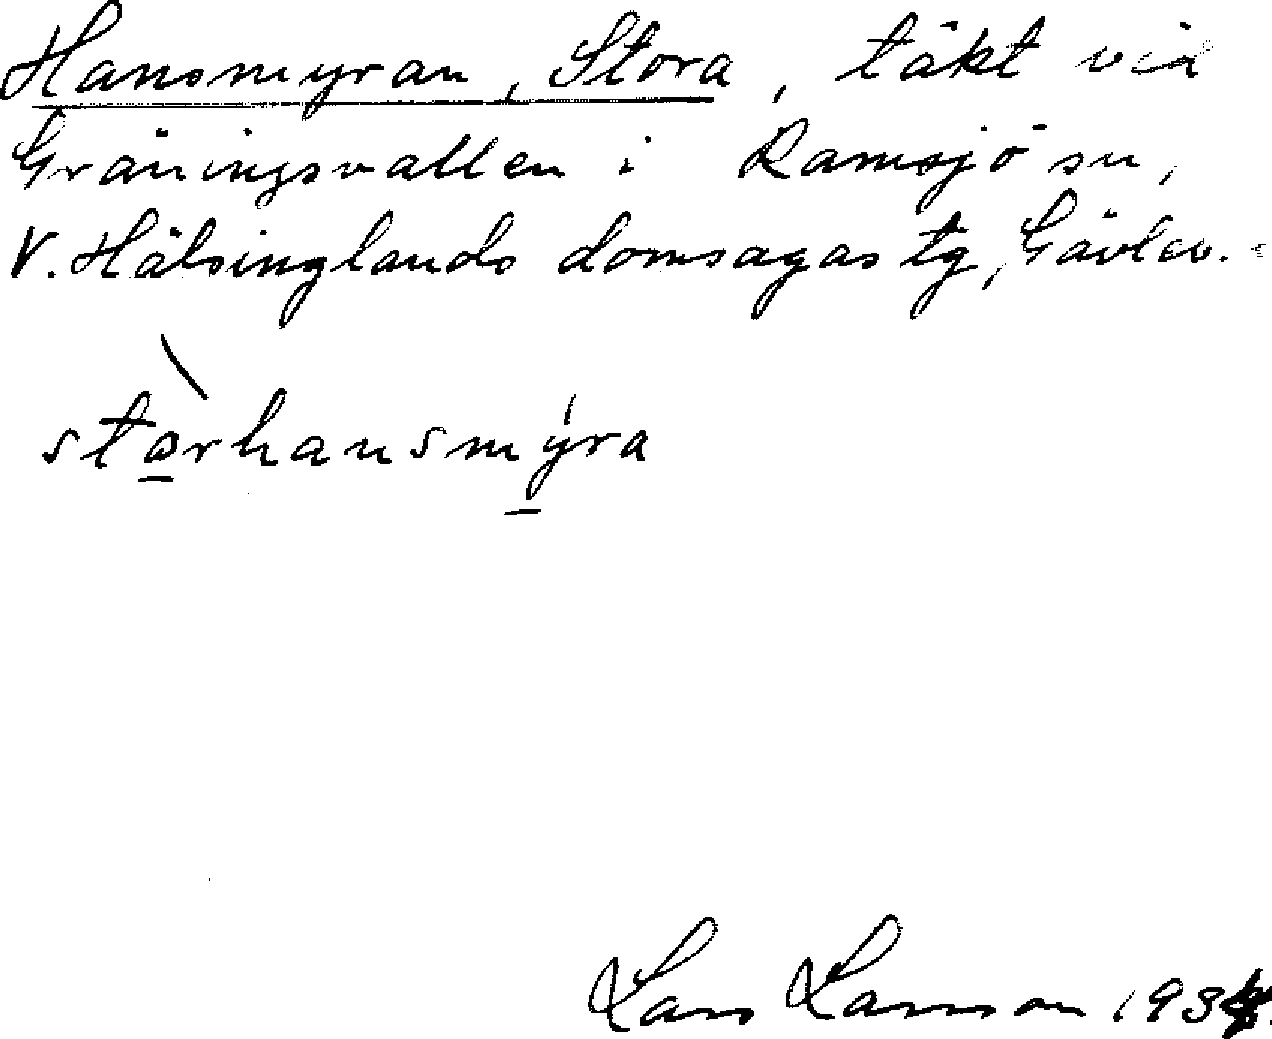 Hansmyran, Stora, täkt vid
Gräningsvallen i Ramsjö sn,
V. Hälsinglands domsagas tg, Gävleb.
stòrhansmýra
Lars Larsson